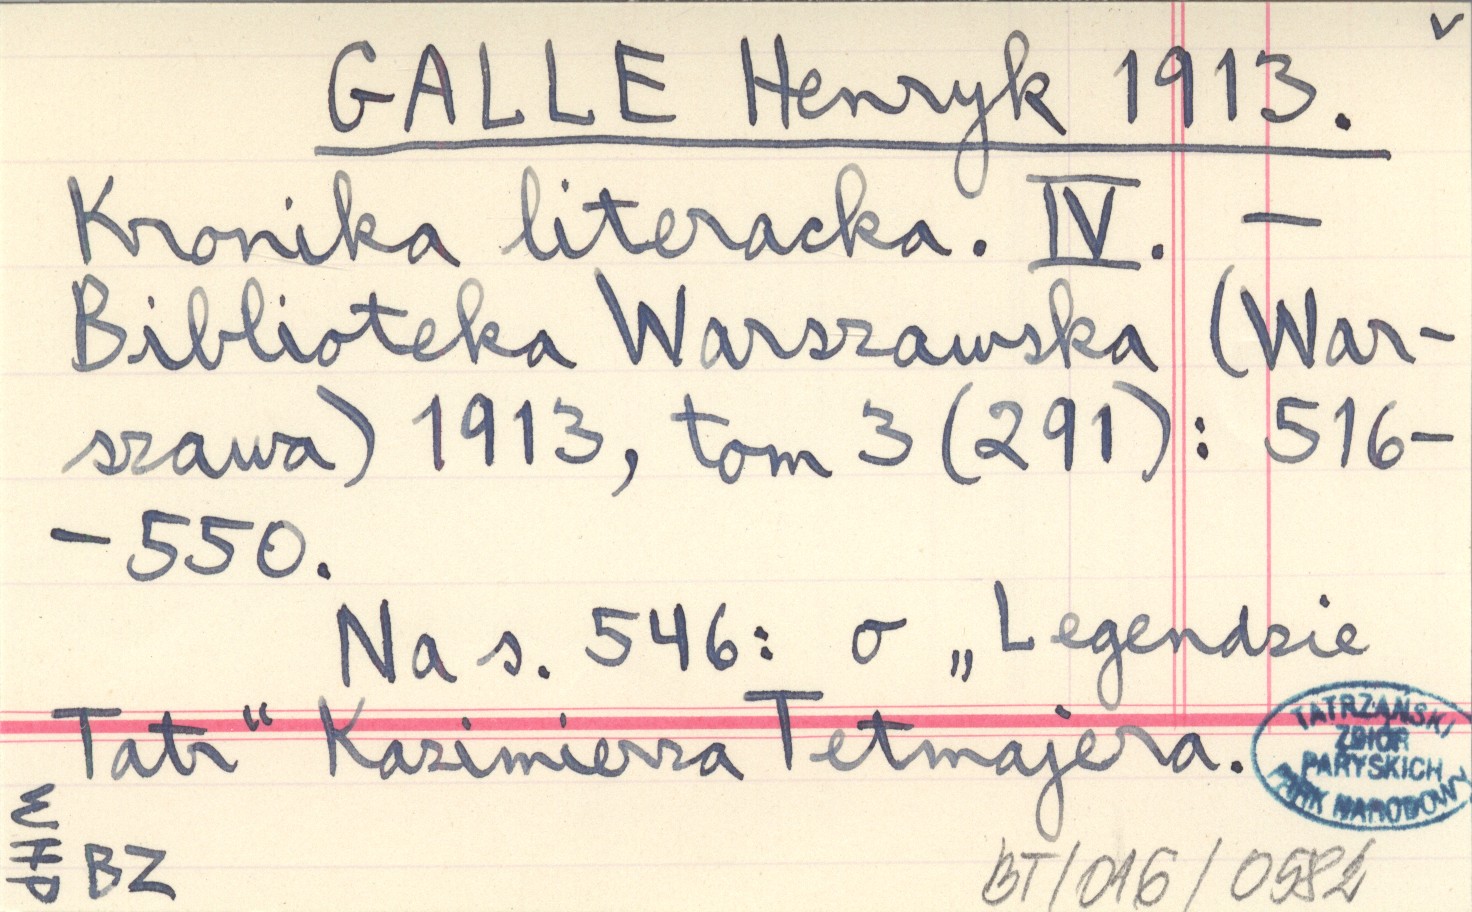 v
GALLE Henryk 1913.
Kronika literacka. IV. —
Biblioteka Warszawska (War-
szawa) 1913, tom 3 (291): 516-
-550.
Na s. 546: o „Legendzie
Tatr“ Kazimierza Tetmajera.
TATRZAŃSKI
ZBIÓR
PARYSKICH
PARK NARODOWY
BZ
BT/016/0582